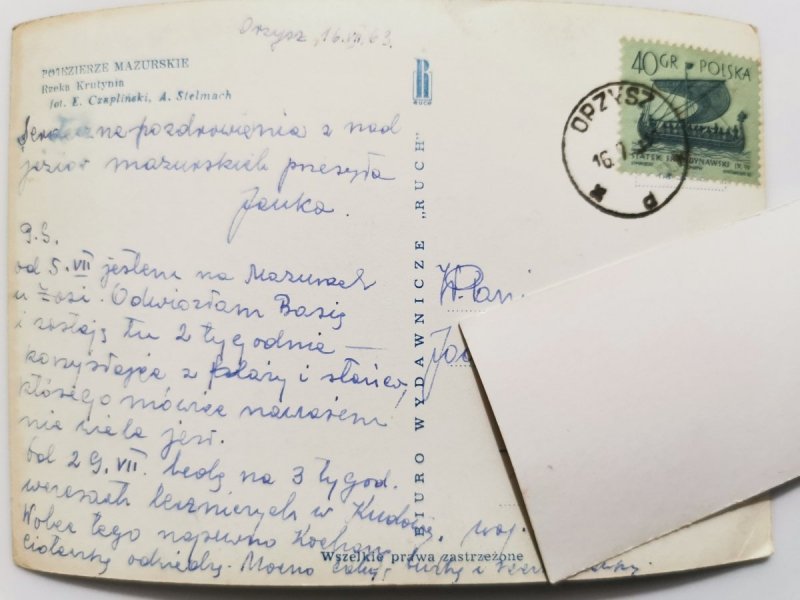 Orzysz, 16.VII.63.
POJEZIERZE MAZURSKIE
Rzeka Krutynia
fot. E. Czapliński, A. Stelmach
RUCH
40 GR POLSKA
STATEK
ORZYSZ
16.7
Serdeczne pozdrowienia z nad
jezior mazurskich przesyła
Janka.
P.S.
od 5.VII jestem na Mazurach
u Zosi. Odwiozłam Basię
i zostaję tu 2 tygodnie —
korzystając z plaży i słońca,
którego mówiąc nawiasem
nie wiele jest.
Od 29.VII. będę na 3 tygod.
wczasach leczniczych w Kudowie, woj.
Wobec tego napewno Kochaną
Ciotunię odwiedzę. Mocno całuję buzkę i
W.Pani
BIURO WYDAWNICZE „RUCH"
Wszelkie prawa zastrzeżone